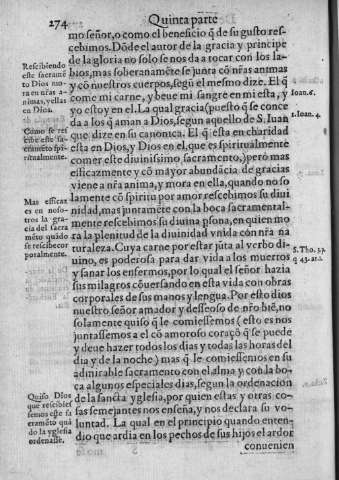 274
Quinta parte
mo señor, o como el beneficio q̃ de su gusto res-
cebimos. Dõde el autor de la gracia y principe
de la gloria no solo se nos da a tocar con los la-
bios, mas soberanamẽte se jũta cõ nr̃as animas
y cõ nuestros cuerpos, segũ el mesmo dize. El q̃
come mi carne, y beue mi sangre en mi esta, y
yo estoy en el. La qual gracia (puesto q̃ se conce
da a los q̃ aman a Dios, segun aquello de S. Iuan
que dize en su canonica. El q̃ esta en charidad
esta en Dios, y Dios en el, que es spiritualmente
comer este diuinissimo sacramento,) però mas
efficazmente y cõ mayor abundãcia de gracias
viene a nr̃a anima, y mora en ella, quando no so
lamente cõ spiritu por amor rescebimos su diui
nidad, mas juntamẽte con la boca sacramental-
mente rescebimos su diuina psona, en quien mo
ra la plenitud de la diuinidad vnida cõn nr̃a na
turaleza. Cuya carne por estar jũta al verbo di-
uino, es poderosa para dar vida a los muertos
y sanar los enfermos, por lo qual el señor hazia
sus milagros cõuersando en esta vida con obras
corporales de sus manos y lengua. Por esto dios
nuestro señor amador y desseoso de nr̃o biẽ, no
solamente quiso q̃ le comiessemos (esto es nos
juntassemos a el cõ amoroso coraçõ q̃ se puede
y deue hazer todos los dias y todas las horas del
dia y de la noche) mas q̃ le comiessemos en su
admirable sacramento con el alma y con la bo-
ca algunos especiales dias, segun la ordenacion
de la sancta yglesia, por quien estas y otras co-
sas semejantes nos enseña, y nos declara su vo-
luntad. La qual en el principio quando enten-
dio que ardia en los pechos de sus hijos el ardor
conuenien
Rescibiendo
este sacramẽ
to Dios mo-
ra en nr̃as a-
nimas, y ellas
en Dios.
Cómo se res
cibe este sa-
cramẽto spi-
ritualmente.
Mas efficaz
es en noso-
tros la gra-
cia del sacra
mẽto quãdo
se rescibe cor
poralmente.
Quiso Dios
que rescibies
semos este sa
cramẽto quã
do la yglesia
ordenasse.
Ioan. 6.
1. Ioan. 4.
S. Tho. 3. p.
q. 43. ar. 2.